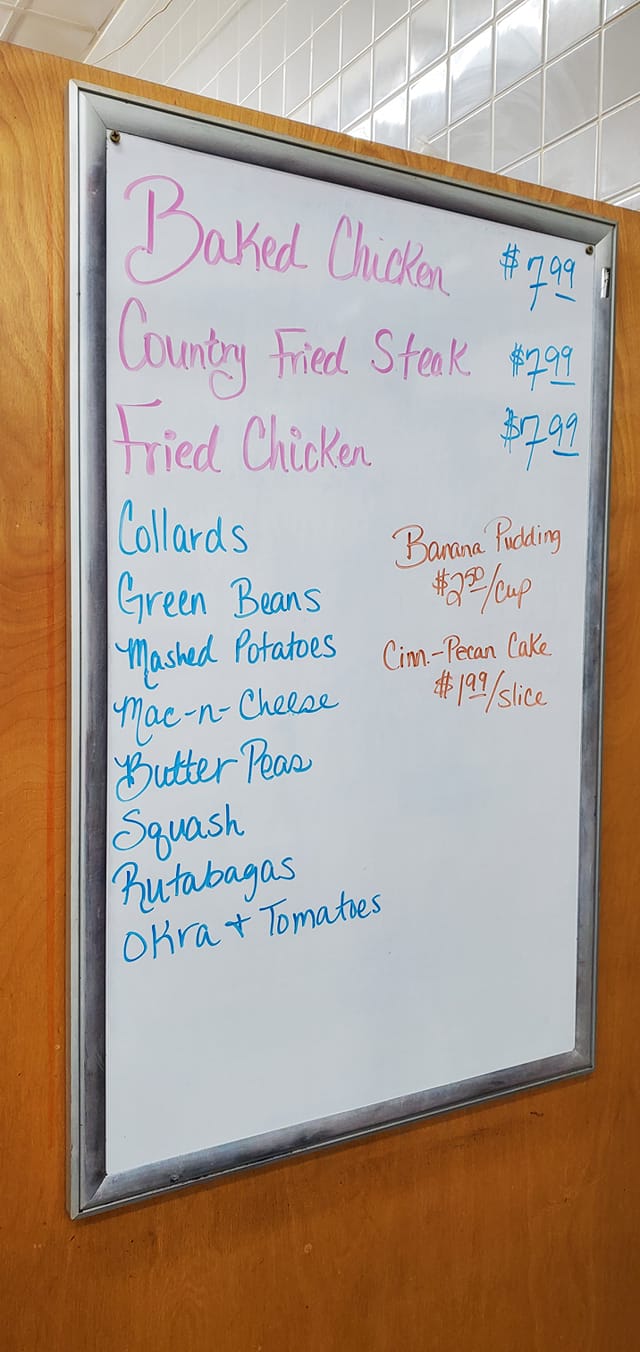 Baked Chicken $7.99
Country Fried Steak $7.99
Fried Chicken $7.99
Collards
Green Beans
Mashed Potatoes
Mac-n-Cheese
Butter Peas
Squash
Rutabagas
Okra + Tomatoes
Banana Pudding
$2.50/cup
Cinn.-Pecan Cake
$1.99/slice